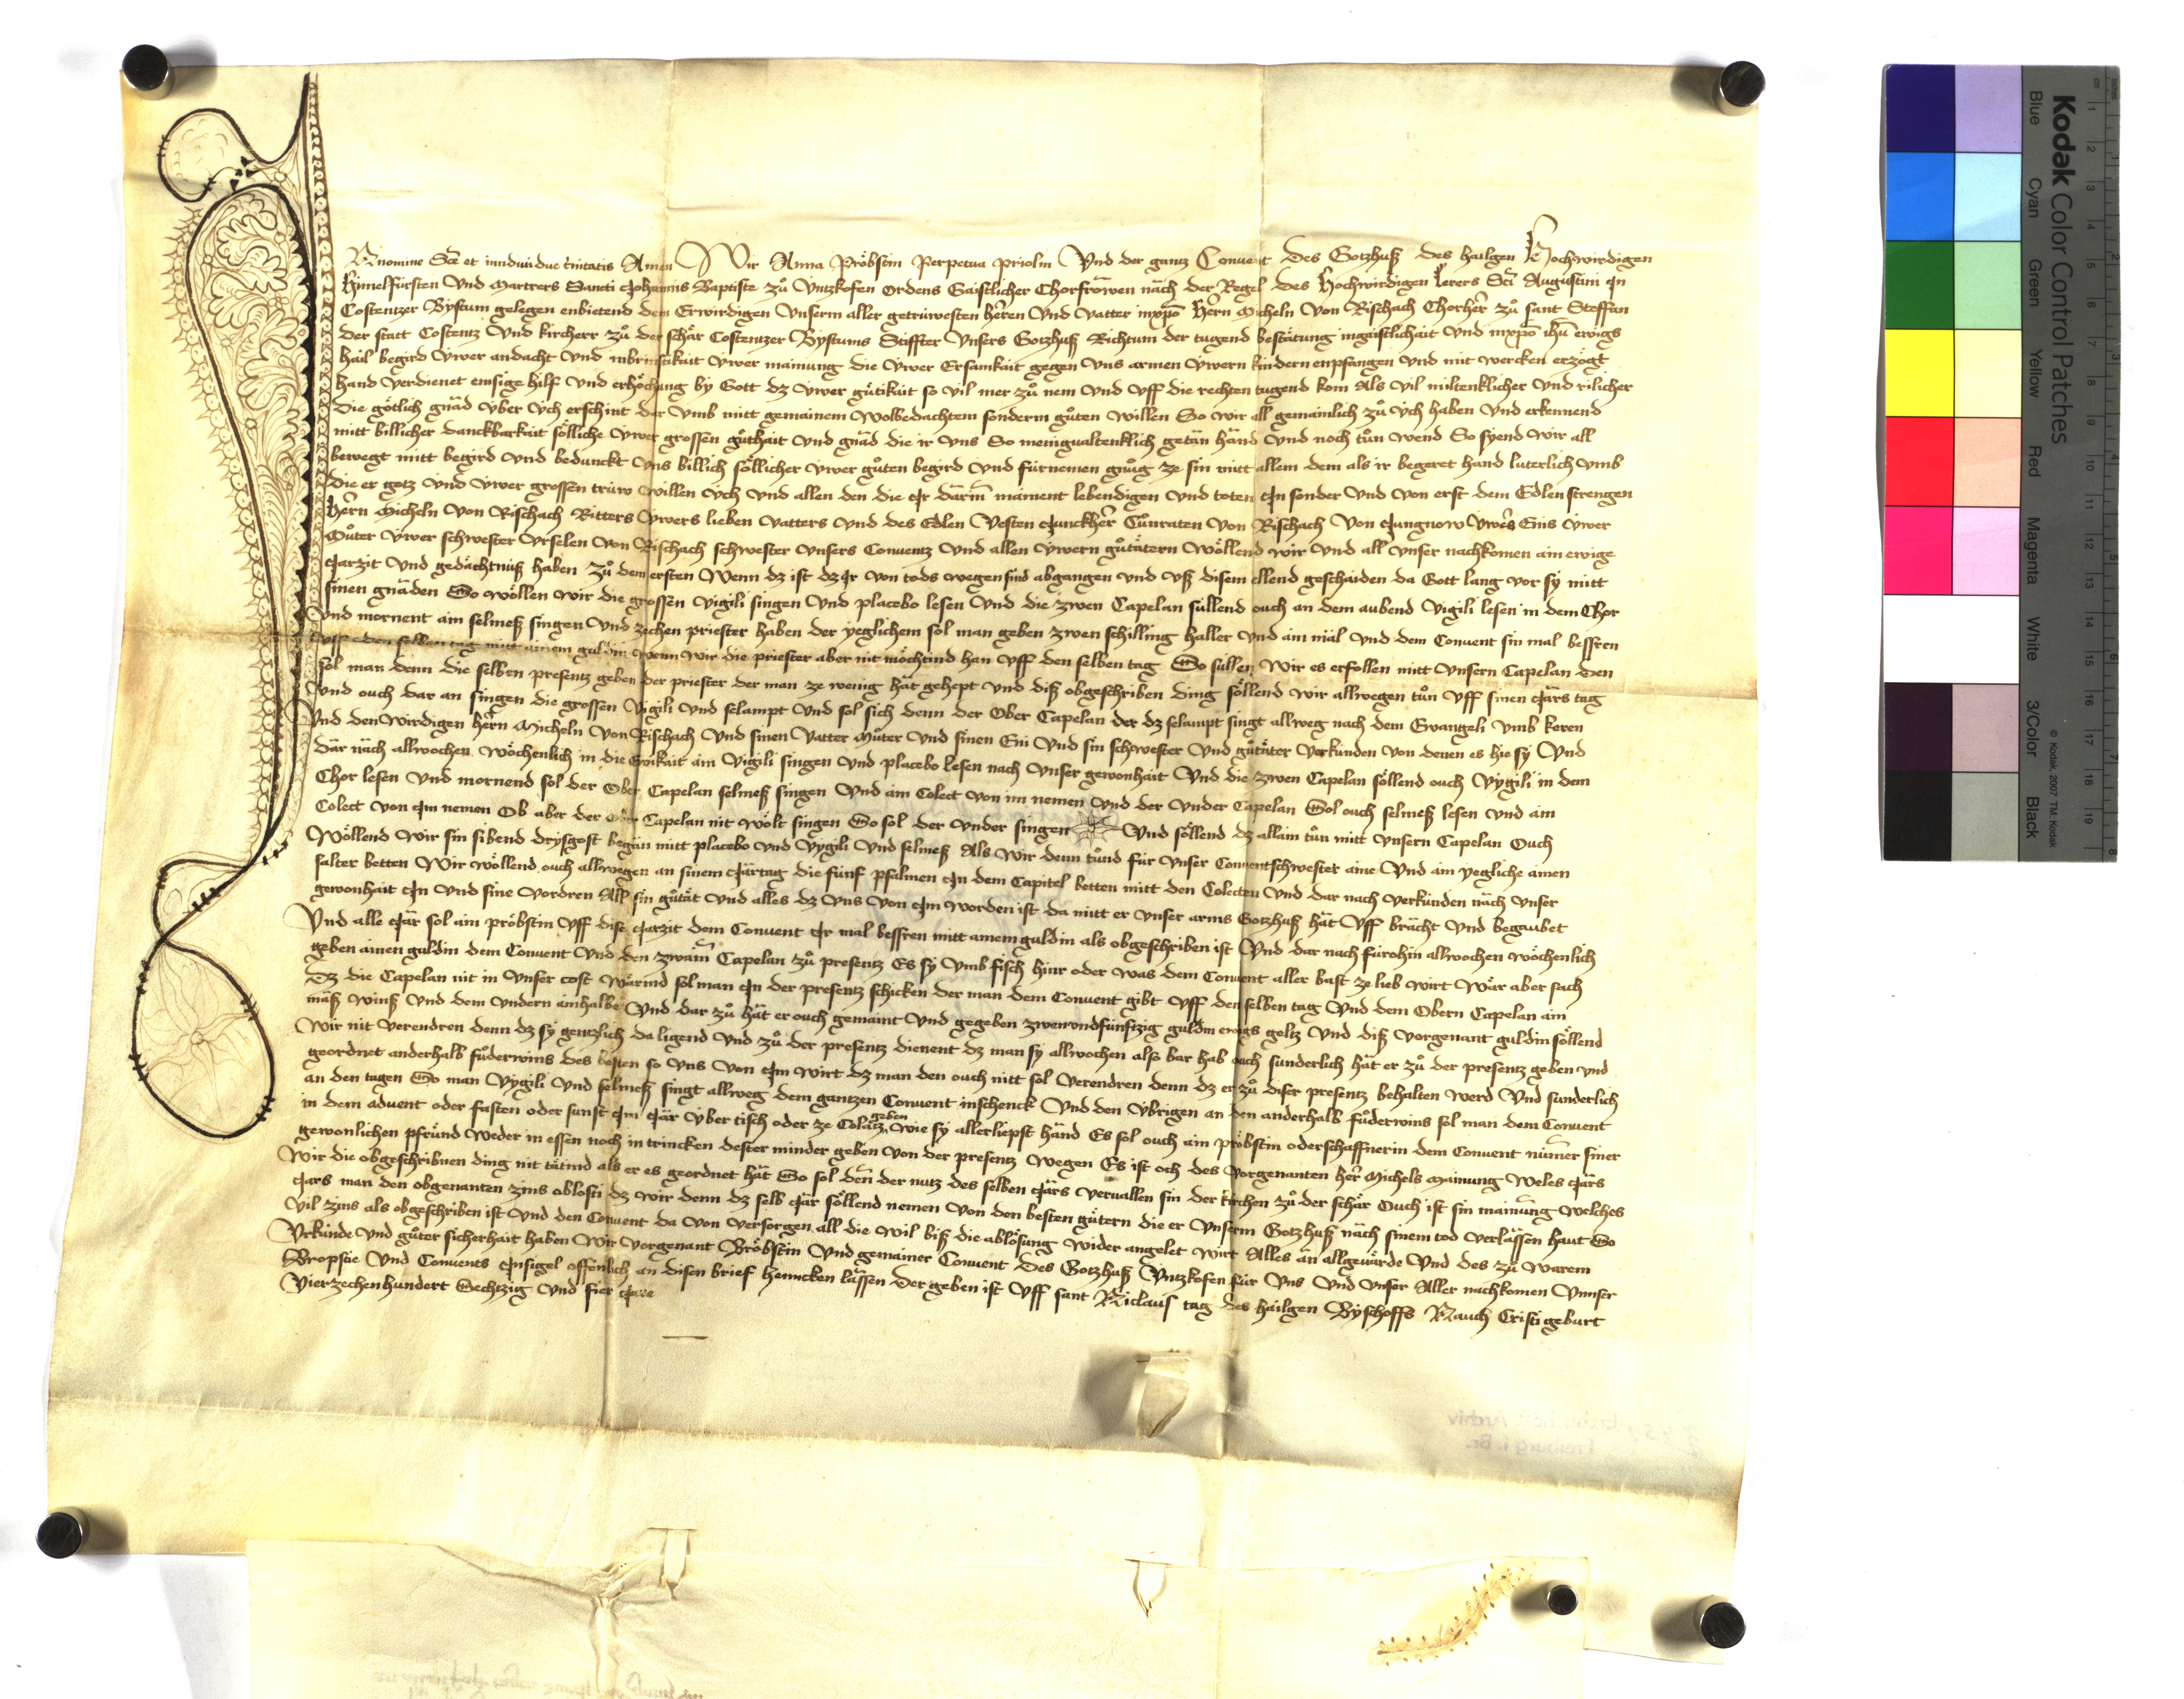 In nomine Scē et inndiuidue trinitatis Amen Wir Anna Pröbstin Perpetua priolin Vnd der gantz Conuent Des Gotzhuß des hailgen Hochwirdigen
Himelfürsten Vnd martrers Sancti Johannis Baptiste zů Vntzkofen ordens Gaistlicher Chorfrowen näch der Regel des Hochwirdigen Lerers Scī Augustini In
Costentzer Bystum gelegen enbietend dem Erwirdigen Vnserm aller getrüwesten herren Vnd Vatter inxpō Hern Micheln Von Rischach Chorher zů sant Steffan
der statt Costentz Vnd kircherr zů der schär Costentzer Bystums Stiffter Vnsers Gotzhuß Richtum der tugend bestätung ingaistlichait Vnd inxpō ihū ewigs
hail begird Vwer andacht Vnd inbrinsikait Vwer mainung die Vwer Ersamkait gegen Vns armen Vwern kindern enpfangen Vnd mit wercken erzögt
hand Verdienet emsige hilf Vnd erhöchung by Gott dz Vwer gütikait so vil mer zů nem Vnd Vff die rechten tugend kom Als vil miltenklicher Vnd rilicher
die götlich gnäd Vber Vch erschint dar Vmb mitt gemainem wolbedachtem sonderm gůten willen So wir all gemainlich zů Vch haben Vnd erkennend
mitt billicher danckbarkait sölliche Vwer grossen gůthait Vnd gnäd die ir Vns So menigualtenklich getän händ Vnd noch tůn wend So syend wir all
bewegt mitt begird Vnd bedunckt Vns billich söllicher Vwer gůten begird Vnd fürnemen gnůg ze sin mitt allem dem als ir begeret hand luterlich Vmb
die er gotz Vnd Vwer grossen trüw willen Vch Vnd allen den die Ir därin mainent lebendigen Vnd toten In sonder Vnd Von erst dem Edlen strengen
Hern Micheln Von Rischach Ritters Vwers lieben Vatters Vnd des Edlen Vesten Junckher Cůnraten Von Rischach Von Jungnow Vwers Enis Vwer
Můter Vwer schwester Vrselen Von Rischach schwester Vnsers Conuentz Vnd allen Vwern gůtätern Wöllend wir Vnd all Vnser nachkomen ain ewige
Jarzit Vnd gedächtnuß haben zů dem ersten Wenn dz ist dz Ir Von tods wegen sind abgangen Vnd Vß disem ellend geschaiden da Gott lang Vor sy mitt
sinen gnäden So wöllen wir die grossen Vigili singen Vnd placebo lesen Vnd die zwen Capelan süllend ouch an dem aubend Vigili lesen in dem Chor
Vnd mornent ain selmeß singen Vnd zechen priester haben der yeglichem sol man geben zwen schilling haller Vnd ain mäl Vnd dem Conuent sin mal bessren
Vff den selben tag mitt ainem guldin wenn wir die priester aber nit möchtind han Vff den selben tag So süllen Wir es erfollen mitt Vnsern Capelan den
sol man denn die selben presentz geben der priester der man ze wenig hät gehept Vnd diß obgeschriben ding söllend wir allwegen tůn Vff sinen Järs tag
Vnd ouch dar an singen die grossen Vigili Vnd selampt Vnd sol sich denn der Ober Capelan der dz selampt singt allweg nach dem Ewangeli Vmb keren
Vnd den wirdigen hern Micheln Von Rischach Vnd sinen Vatter Můter Vnd sinen Eni Vnd sin schwester Vnd gůtäter Verkünden Von denen es hie sy Vnd
Där näch allwochen wöchenlich in die Ewikait ain Vigili singen Vnd placebo lesen nach Vnser gewonhait Vnd die zwen Capelan söllend ouch Vygili in dem
Chor lesen Vnd mornend sol der Ober Capelan selmeß singen Vnd ain Colect Von im nemen Vnd der Vnder Capelan Sol ouch selmeß lesen Vnd ain
Colect Von Im nemen Ob aber der ober Capelan nit wölt singen So sol der Vnder singen Vnd söllend dz allain tůn mitt Vnsern Capelan Ouch
Wöllend wir sin sibend drysgost begän mitt placebo Vnd Vygili Vnd selmeß Als wir denn tůnd für Vnser Conuentschwester aine Vnd ain yegliche ainen
salter betten Wir wöllend ouch allwegen an sinem Järtag die fünf psalmen In dem Capitel betten mitt den Colecten Vnd dar nach Verkünden näch Vnser
gewonhait In Vnd sine Vordren All sin gůtät Vnd alles dz Vns Von Im worden ist da mitt er Vnser arms Gotzhuß hät Vff brächt Vnd begaubet
Vnd alle Jär sol ain pröbstin Vff dise Jarzit dem Conuent Ir mal bessren mitt ainem guldin als obgeschriben ist Vnd dar nach fürohin allwochen wöchenlich
geben ainen guldin dem Conuent Vnd den zwain Capelan zů presentz Es sy Vmb fisch hünr oder was dem Conuent aller bast ze lieb wirt Wär aber sach
Dz die Capelan nit in Vnser cost wärind sol man In der presentz schicken der man dem Conuent gibt Vff den selben tag Vnd dem Obern Capelan ain
mäß winß Vnd dem Vndern ainhalbe Vnd dar zů hät er ouch gemaint Vnd gegeben zwenvndfünftzig guldin ewigs geltz Vnd diß Vorgenant guldin söllend
Wir nit Verendren denn dz sy gentzlich da ligend Vnd zů der presentz dienent dz man sy allwochen also bar hab ouch sunderlich hät er zů der presentz geben Vnd
geordnet anderhalb fůderwins des besten so Vns Von Im wirt dz man den ouch nitt sol Verendren denn dz er zů diser presentz behalten werd Vnd sunderlich
an den tagen So man Vygili Vnd selmeß singt allweg dem gantzen Conuent inschenck Vnd den Vbrigen an den anderhalb fůderwins sol man dem Conuent
in dem aduent oder fasten oder sunst Im Jär Vber tisch oder ze Colatz geben wie sy allerliepst händ Es sol ouch ain pröbstin oder schaffnerin dem Conuent nümer siner
gewonlichen pfründ weder in essen noch in trincken dester minder geben Von der presentz wegen Es ist och des Vorgenanten her Michels mainung Weles Järs
Wir die obgeschribnen ding nit tätind als er es geordnet hät So sol den der nutz des selben Järs Veruallen sin der kirchen zů der schär Ouch ist sin mainung welches
Jars man den obgenanten zins ablosti dz wir denn dz selb Jär söllend nemen Von den besten gütern die er Vnserm Gotzhuß näch sinem tod Verlässen haut So
Vil zins als obgeschriben ist Vnd den Conuent da Von Versorgen all die wil biß die ablösung wider angelet wirt Alles än allgeuärde Vnd des zů warem
Vrkünde Vnd gůter sicherhait haben Wir Vorgenant Bröbstin Vnd gemainer Conuent Des Gotzhuß Vntzkofen für Vns Vnd Vnser Aller nachkomen Vnnser
Bropstie Vnd Conuents Insigel offenlich an disen brief hencken lässen Der geben ist Vff sant Niclaus tag des hailgen Byschoffs Nauch Cristi geburt
Vierzechenhundert Sechtzig Vnd fier Jare
Kodak Color Control Patches
Blue Cyan Green Yellow Red Magenta White 3/Color Black
© Kodak, 2007 TM: Kodak
cm 1 2 3 4 5 6 7 8 9 10 11 12 13 14 15 16 17 18 19
inches 1 2 3 4 5 6 7 8
Archiv
Freiburg i. Br.